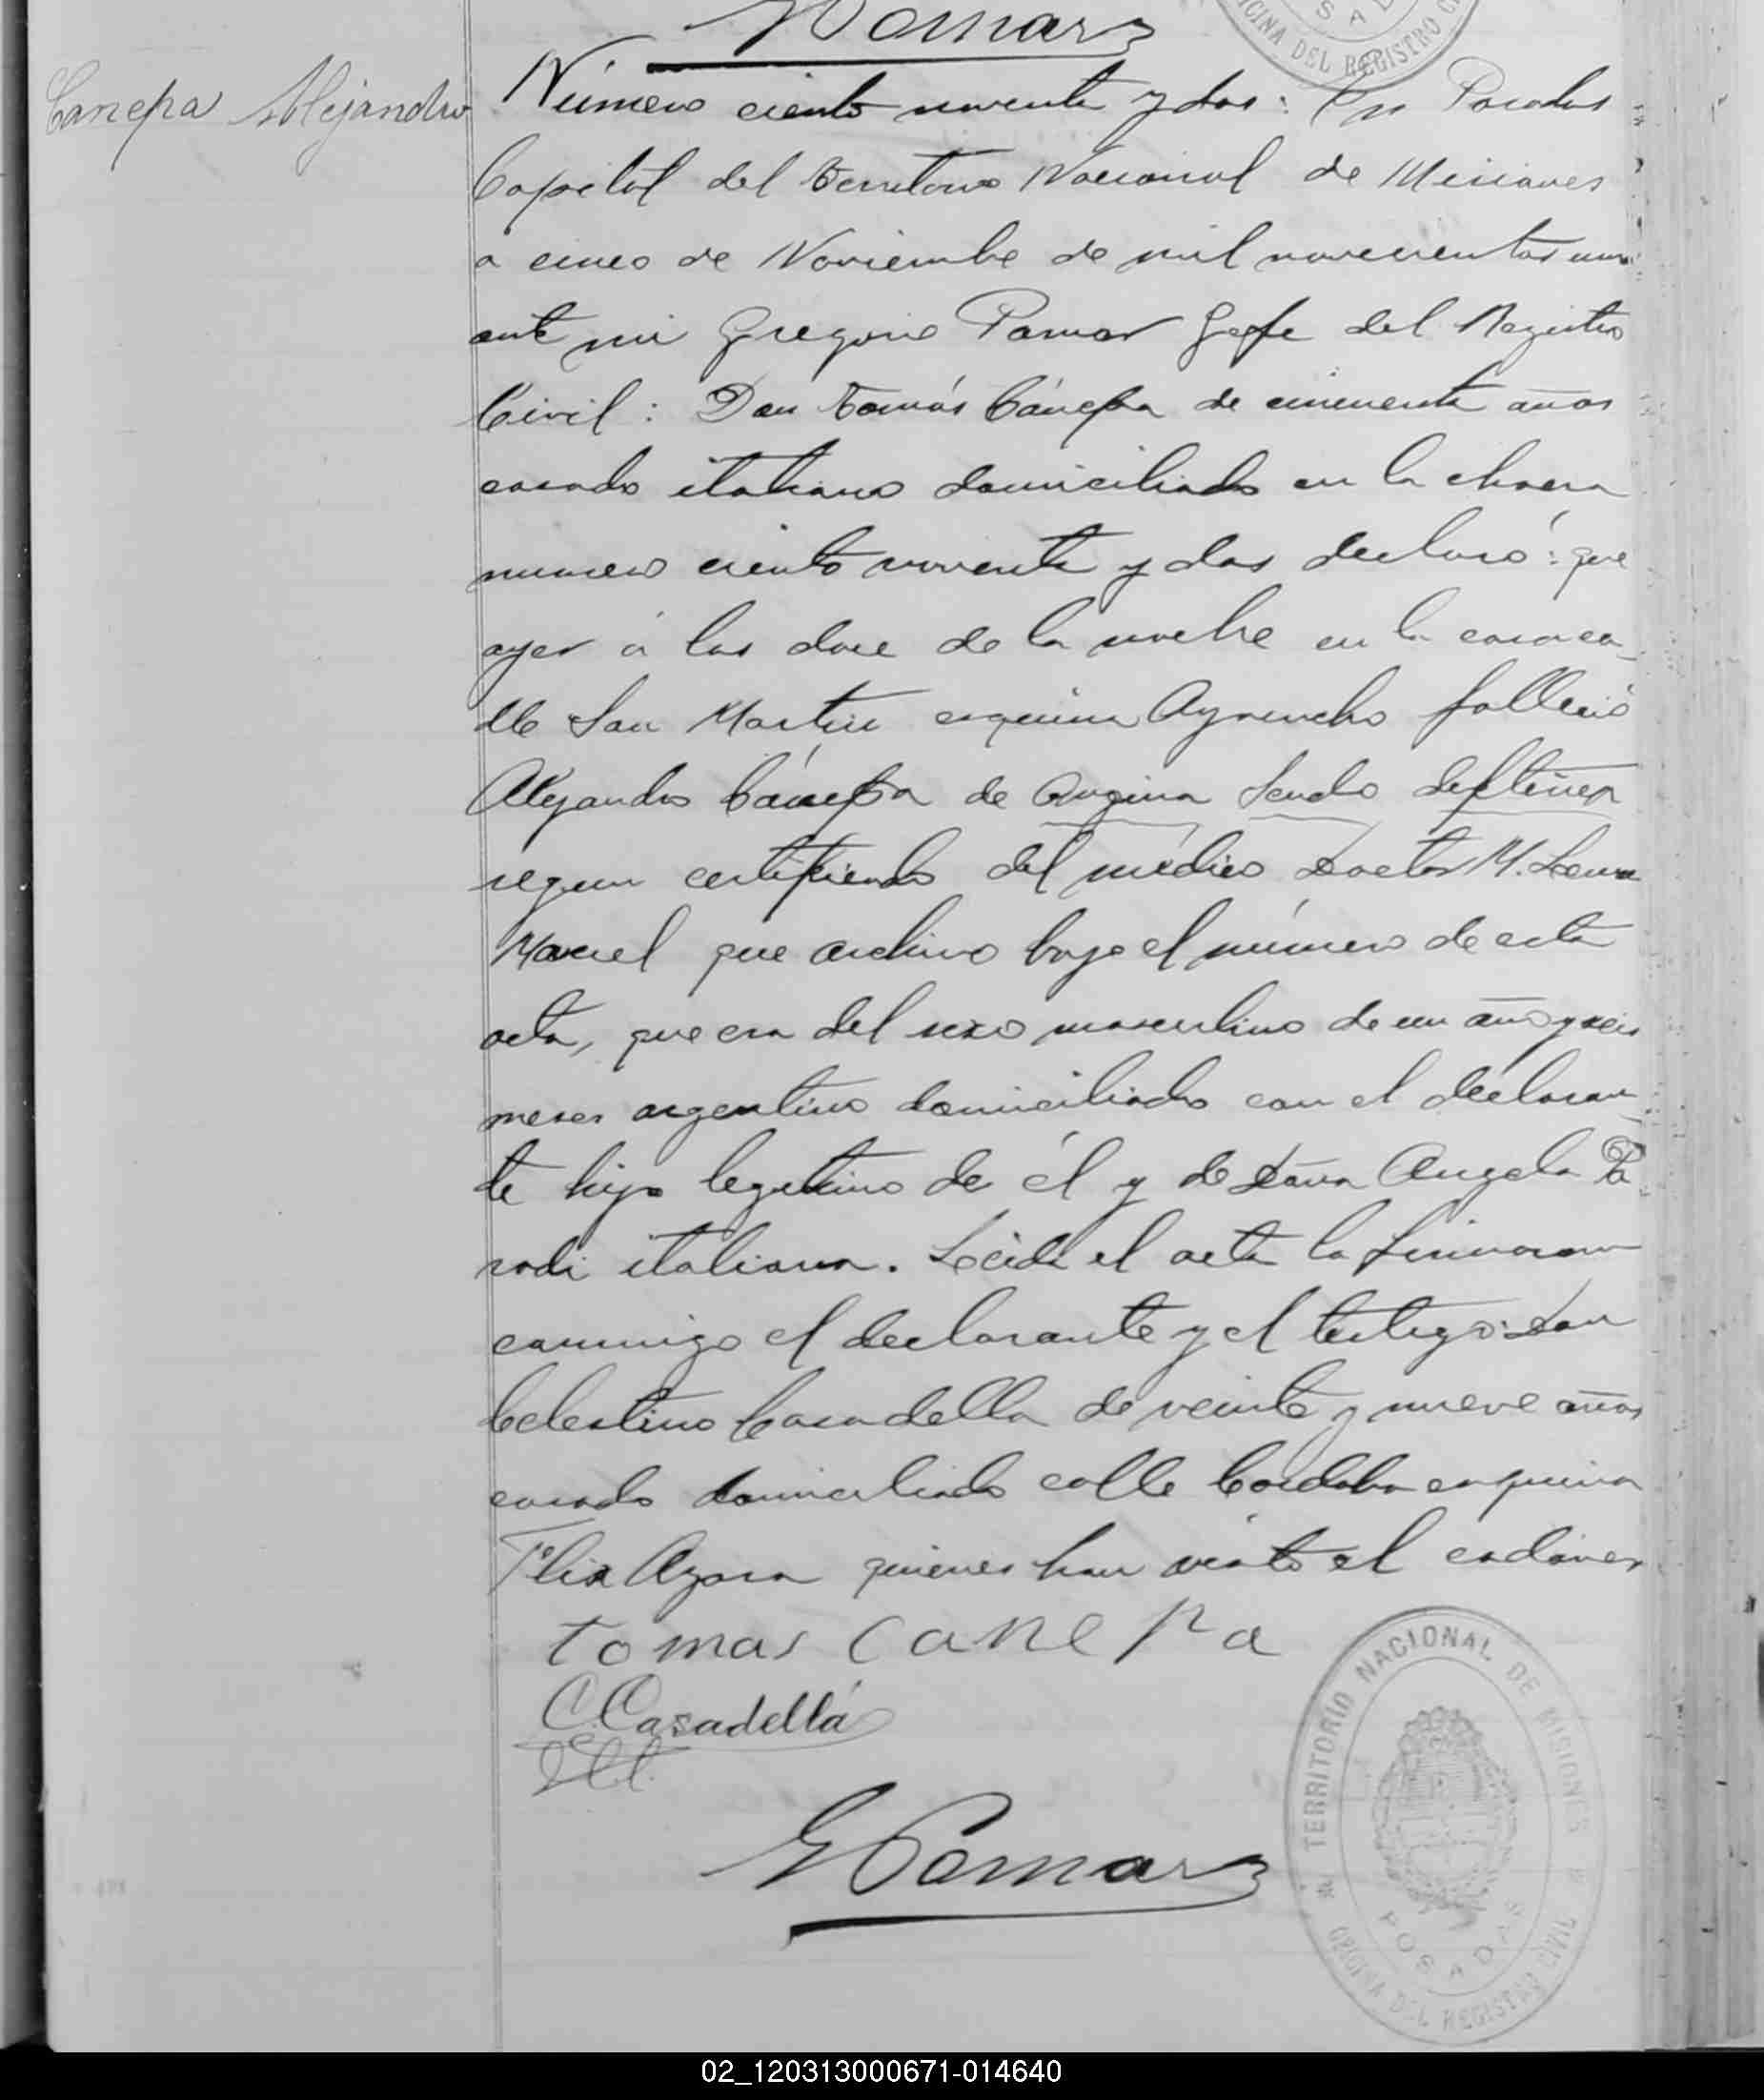 Pomar
OFICINA DEL REGISTRO
Canepa Alejandro
Número ciento noventa y dos: En Posadas
Capital del Territorio Nacional de Misiones
a cinco de Noviembre de mil novecientos uno
ante mi Gregorio Pomar Gefe del Registro
Civil: Don Tomás Cánepa de cincuenta años
casado italiano domiciliado en la chacra
numero ciento noventa y dos declaró: que
ayer á las doce de la noche en la casa ca-
lle San Martin esquina Ayacucho falleció
Alejandro Cánepa de Angina Seudo
segun certificado del médico Doctor M.
que archivo bajo el número de esta
acta, que era del sexo masculino de un año y seis
meses argentino domiciliado con el declaran-
te hijo legitimo de él y de Doña Angela Pa-
rodi italiana. Leida el acta la firmaron
conmigo el declarante y el testigo: Don
Celestino Casadella de veinte y nueve años
casado domiciliado calle Cordoba esquina
Felix Azara quienes han visto el cadáver
tomas canepa
C. Casadellá
G Pomar
TERRITORIO NACIONAL DE MISIONES
POSADAS
OFICINA DEL REGISTRO CIVIL
02_120313000671-014640